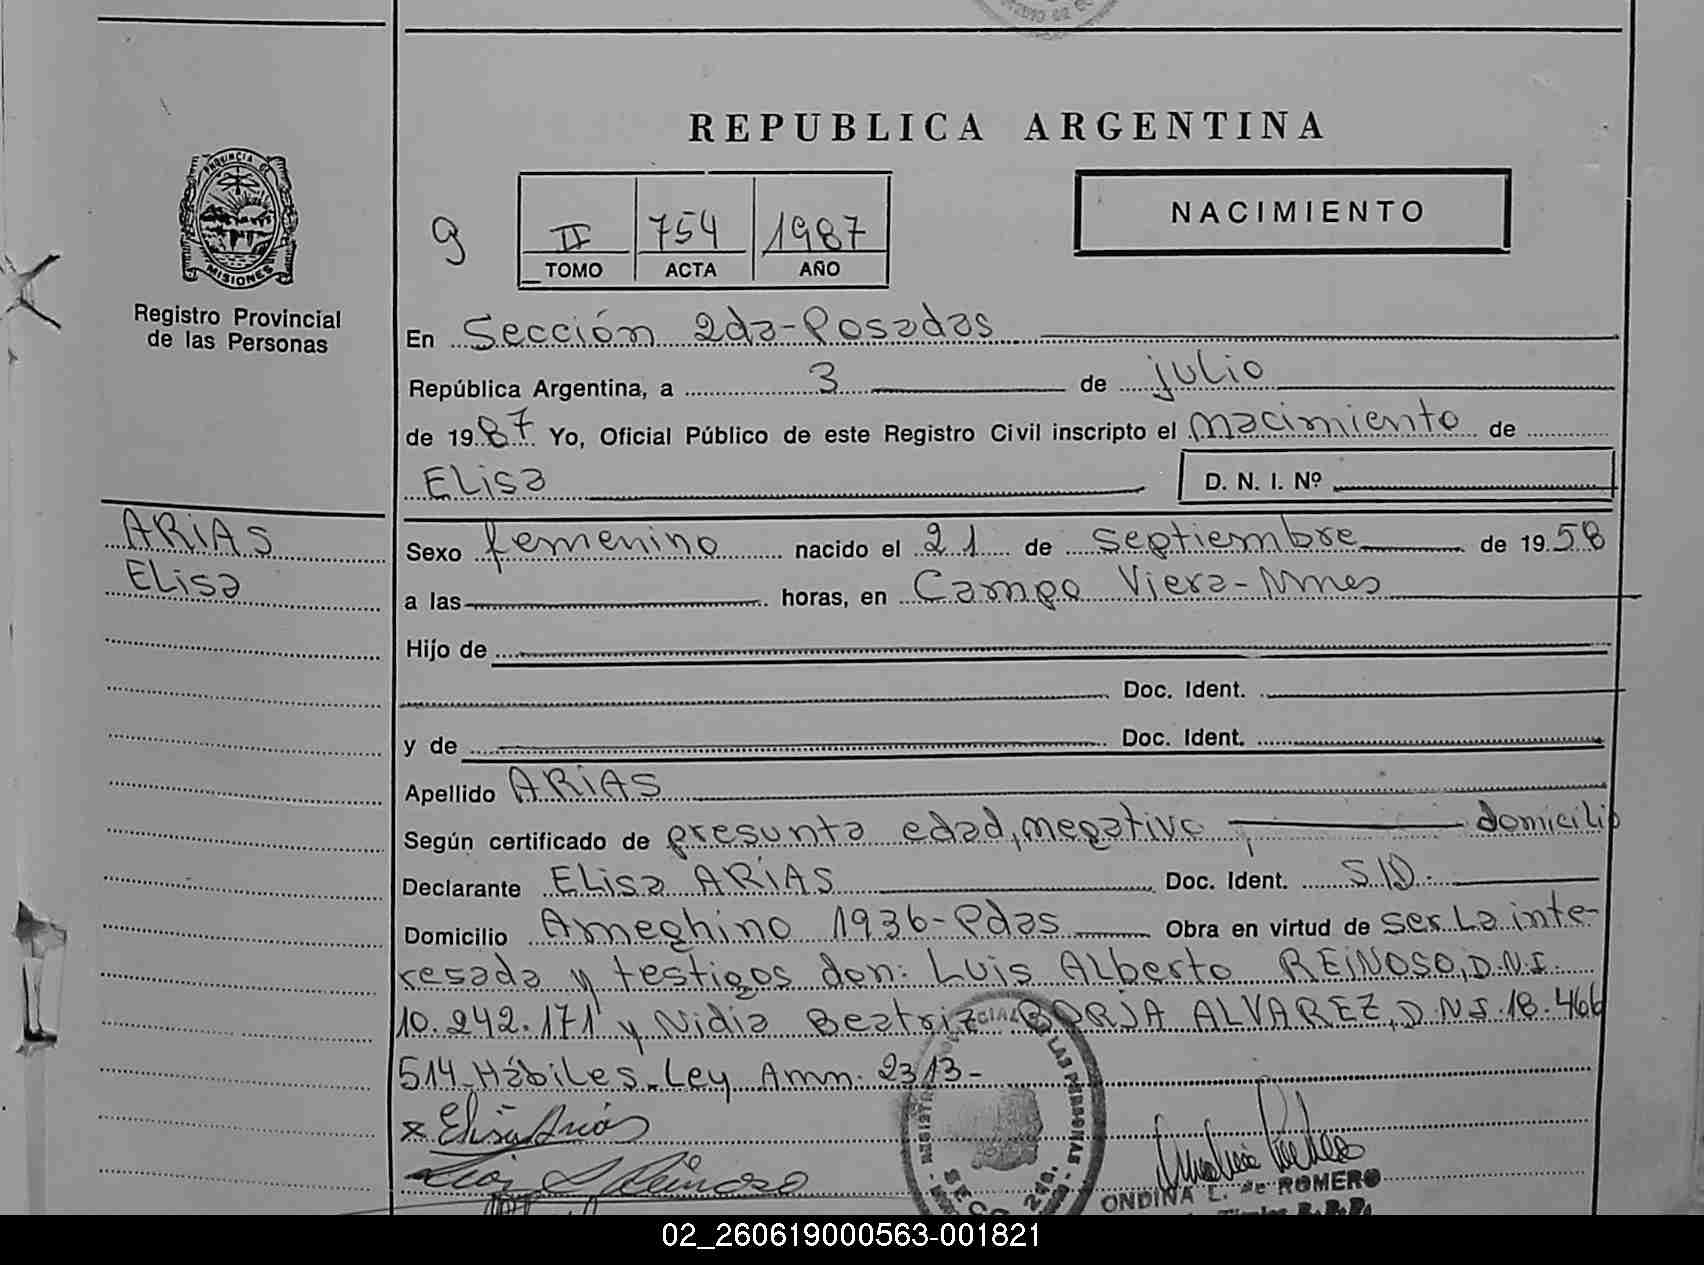 REPUBLICA ARGENTINA
PROVINCIA DE
MISIONES
Registro Provincial
de las Personas
9
II 754 1987
TOMO ACTA AÑO
NACIMIENTO
En Sección 2da-Posadas
República Argentina, a 3 de julio
de 1987 Yo, Oficial Público de este Registro Civil inscripto el nacimiento de
Elisa D. N. I. Nº
ARIAS
Elisa
Sexo femenino nacido el 21 de septiembre de 1958
a las horas, en Campo Viera-Mnes
Hijo de
Doc. Ident.
y de Doc. Ident.
Apellido ARIAS
Según certificado de presunta edad, negativo, domicilio
Declarante Elisa ARIAS Doc. Ident. S/D.
Domicilio Ameghino 1936-Pdas Obra en virtud de ser La inte-
resada y testigos don: Luis Alberto REINOSO, D.N.I.
10.242.171 y Nidia Beatriz BORJA ALVAREZ, D.N.I. 18.466
514-Hábiles-Ley Amn. 2313-
x Elisa Arias
Luis A Reinoso
ONDINA L. de ROMERO
02_260619000563-001821